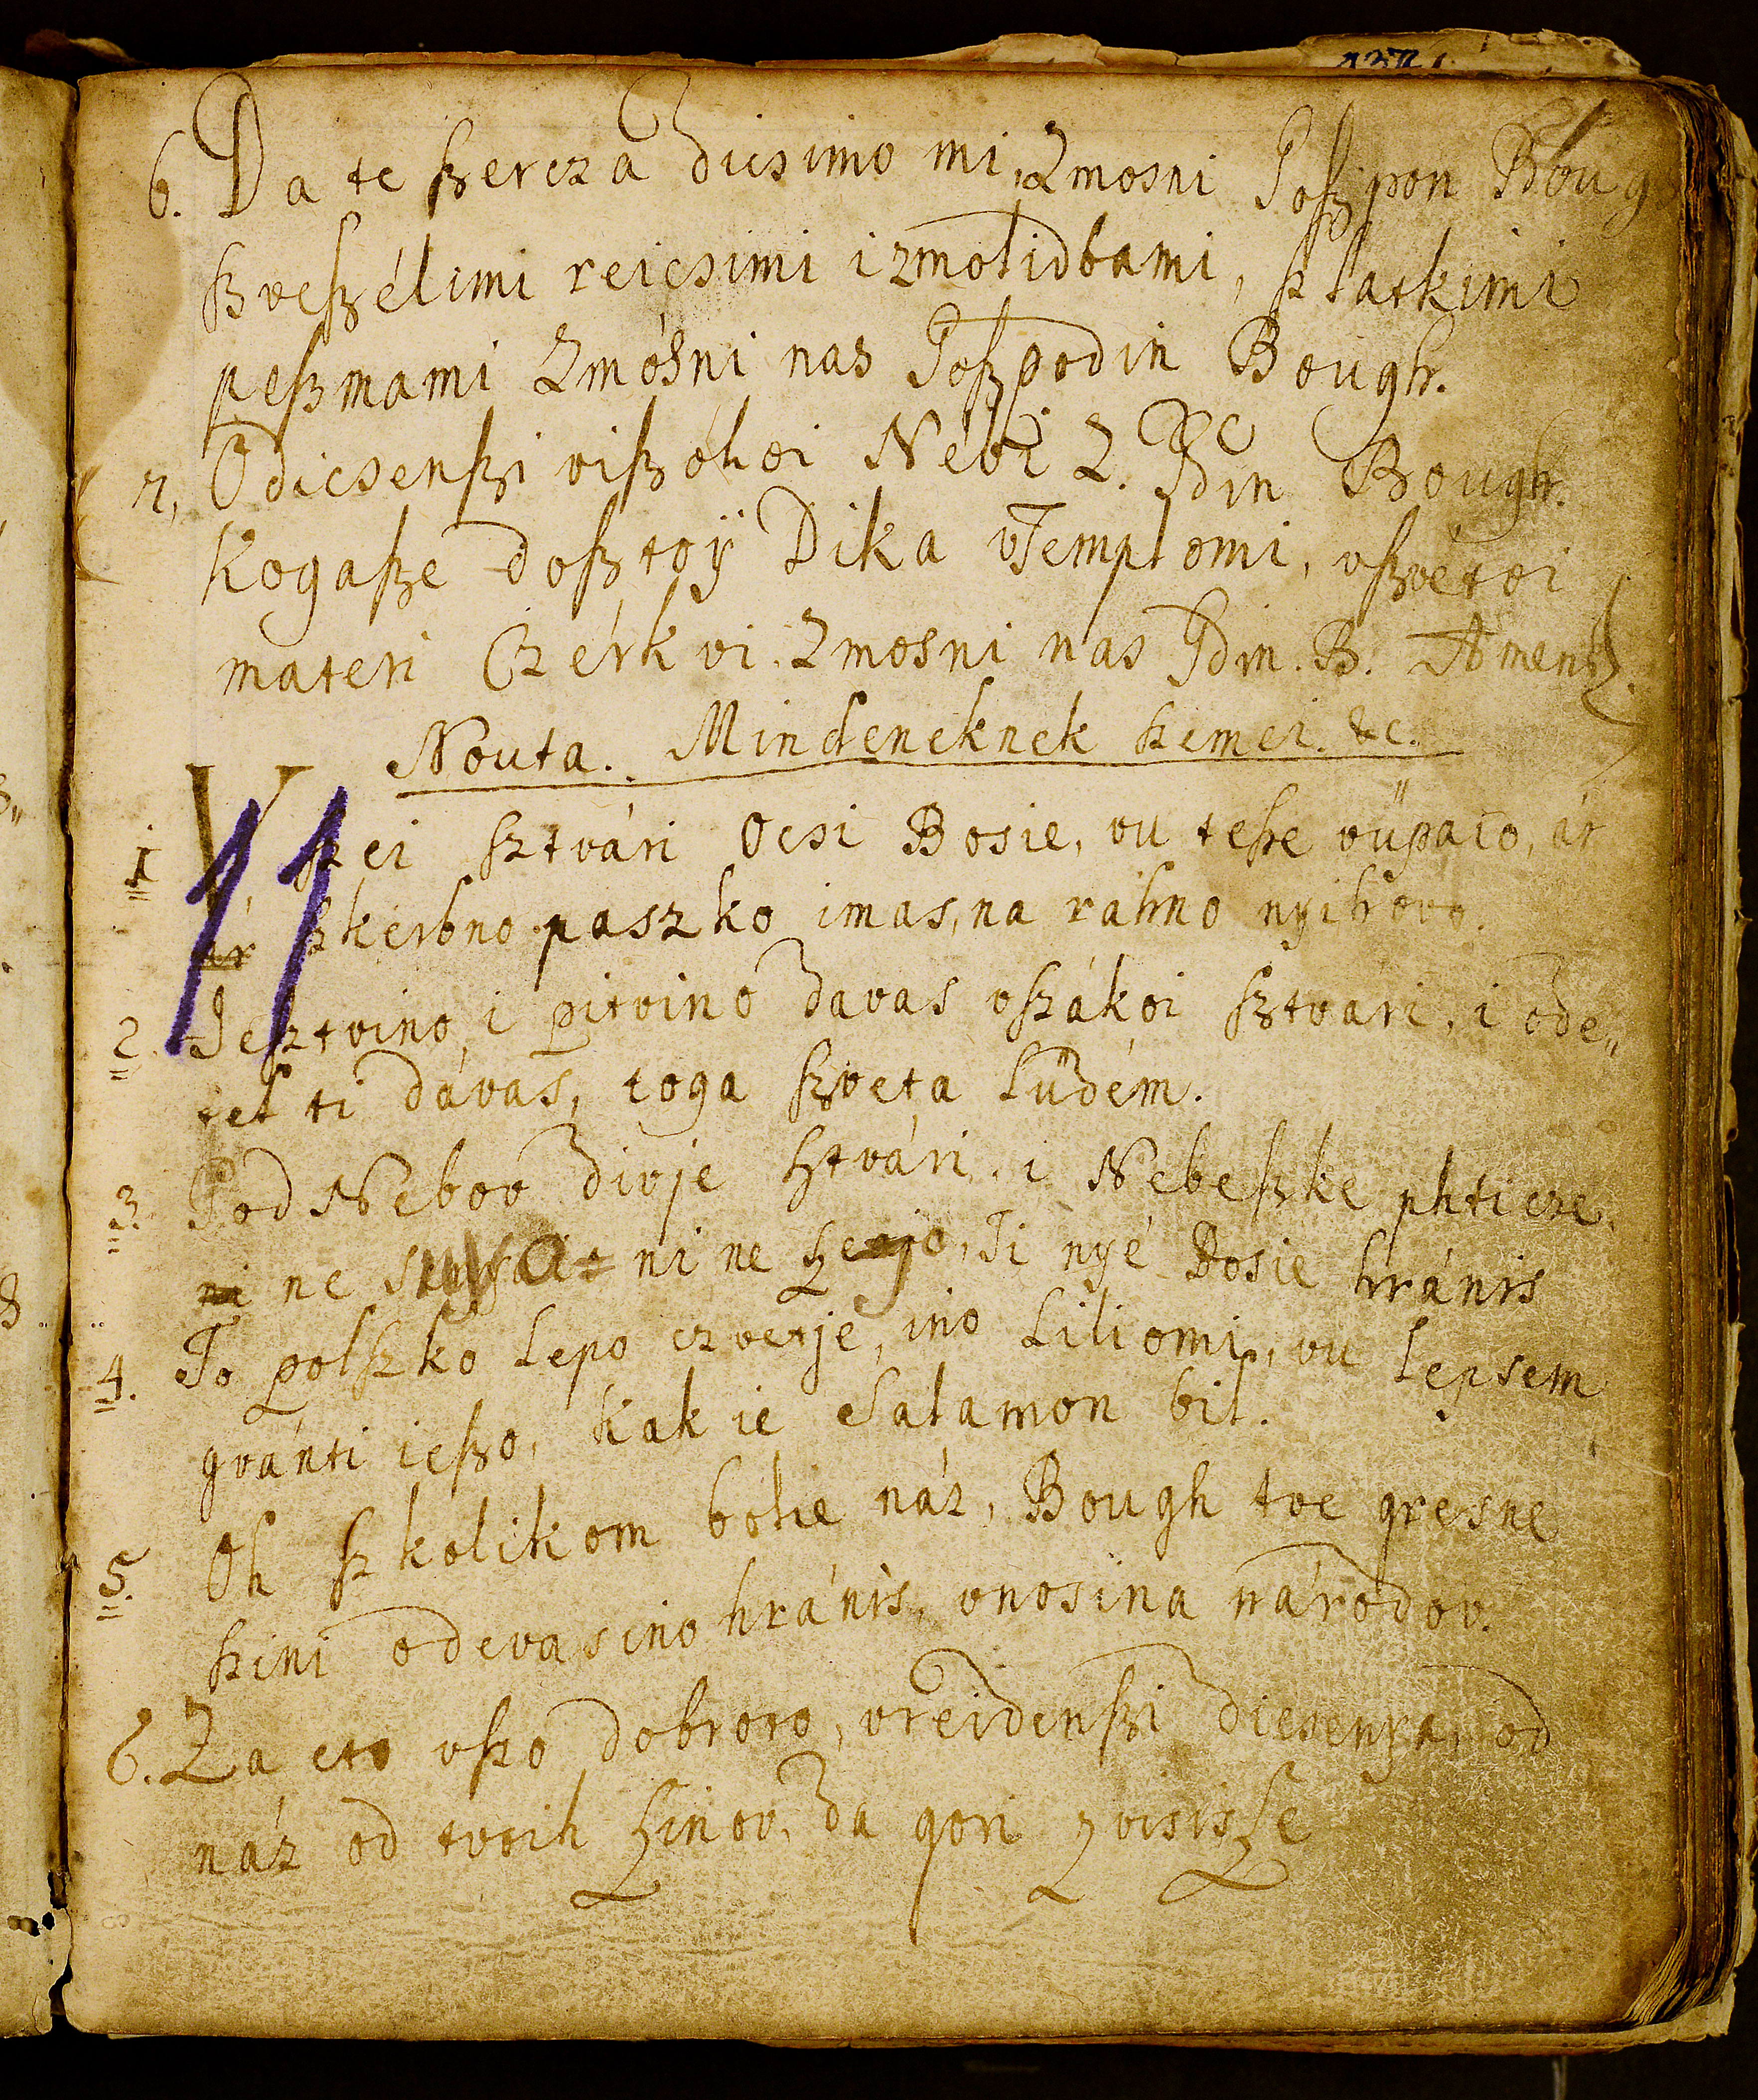 6. Da te ßercza dicsimo mi, Zmosni Goßpon Boug
ßveßélimi reicsimi i zmolidbami, ßlatkimi
peßmami Zmósni nas Goßpodin Bough.
7, Odicsenßi vißókoi Nébi Z. Gdin Bough.
Kogaße doßtoÿ Dika vTemplomi, vßvétoi
materi Czérkvi. Zmosni nas Gdin. B. Amen.
Nouta. Mindeneknek ßemei. &c.
1 Vßei ßztvári Ocsi Bosie, vu teße vüpaio, ár
ár ßkerbno paszko imas, na ráhno nyihovo.
2. Jeßtvino, i pitvino davas vßzákoi ßztvári, i ode„
tel ti dávas, toga ßzveta lüdém.
3. Pod Nebov divje ßtvári, i Nebeßke phticze,
ni ne ni ne ßejo, Ti nyé Bosie hránis
4. To polßzko lepo czvetje, ino Liliomi, vu lepsem
gvánti ießo, kak ie Salamon bil.
5. Oh ßkolikom bolie náz, Bough tve gresne
ßini odevas ino hránis, vnosina národov.
6. Za eto vßo dobroro, vreidenßi dicsenya, od
náz od tvoih ßinov, da gori zvisisße
11